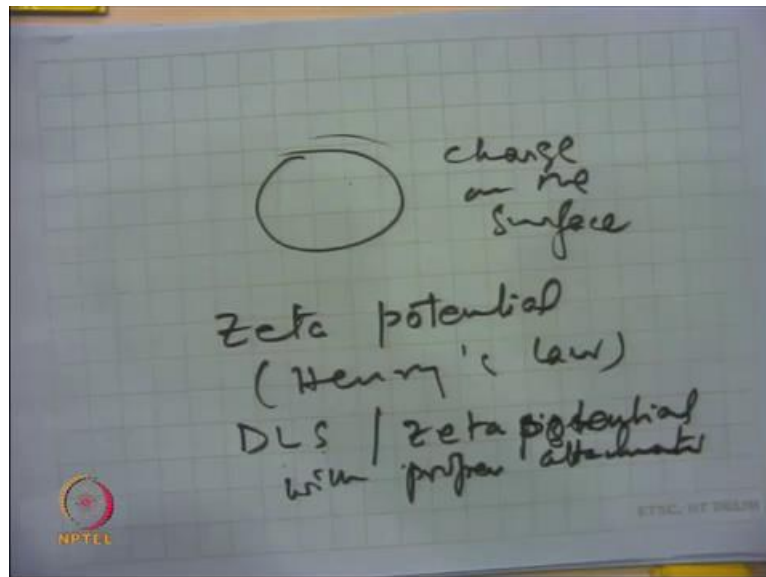 charge
on the
surface
Zeta potential
(Henry's law)
DLS / zeta potential
with proper attachments
NPTEL
ETSC, IIT DELHI